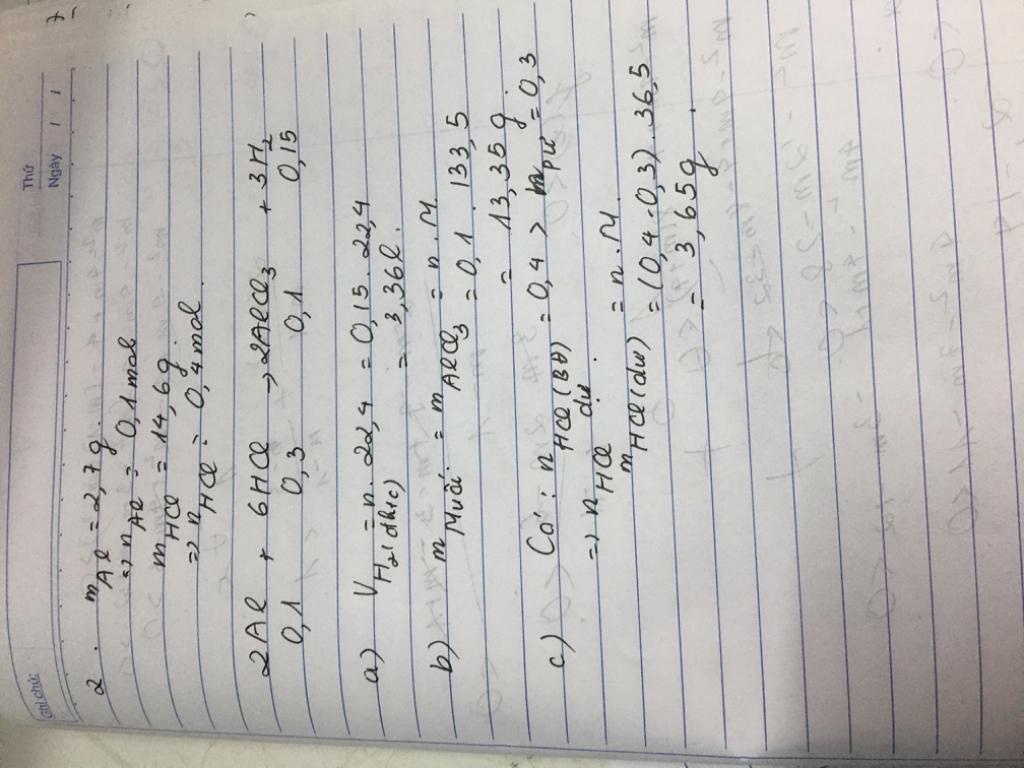 Ghi chú:
Thứ
Ngày / /
2. mAl = 2,7g.
=> nAl = 0,1 mol
mHCl = 14,6g.
=> nHCl = 0,4 mol.
2Al + 6HCl → 2AlCl3 + 3H2
0,1 0,3 0,1 0,15
a) VH2(đktc) = n. 22,4 = 0,15. 22,4
= 3,36l.
b) mMuối = mAlCl3 = n.M
= 0,1. 133,5
= 13,35g.
c) Có: nHCl(BĐ) = 0,4 > nPư = 0,3
=> nHCl dư.
mHCl(dư) = n.M
= (0,4-0,3). 36,5
= 3,65g.